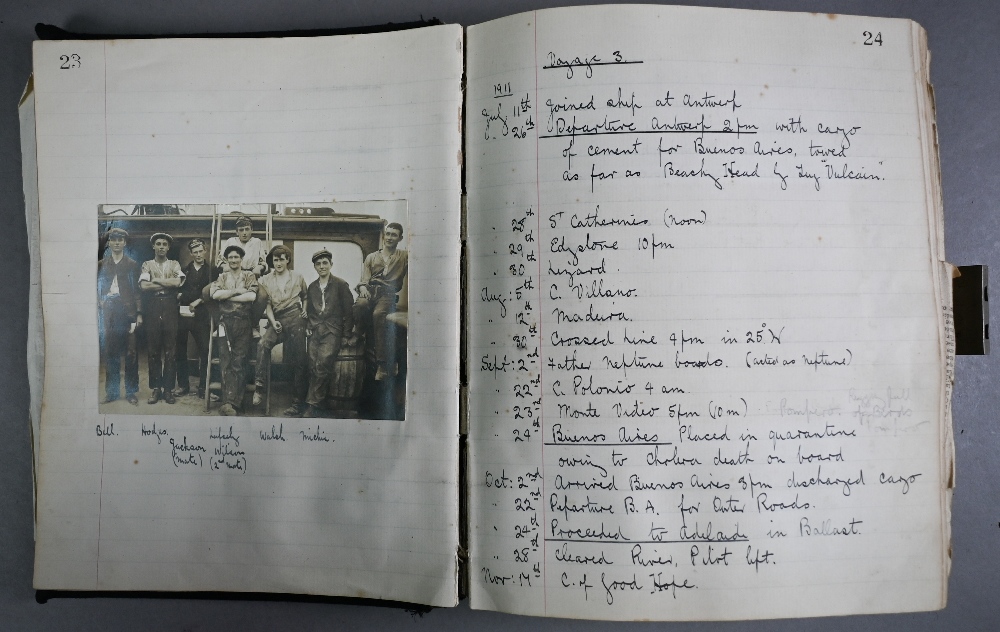 23
Bell. Hodge. Walsh Michie.
Jackson Wilson
(mate) (2nd mate)
24
Voyage 3.
1911
July 11th Joined ship at Antwerp
" 26th Departure Antwerp 2pm with cargo
of cement for Buenos Aires, towed
as far as Beachy Head by Tug "Vulcain".
" 28th St Catherines (noon)
" 29th Edystone 10pm
" 30th Lizard.
Aug: 5th C. Villano.
" 12th Madeira.
" 30th Crossed Line 4pm in 25° W
Sept: 2nd Father Neptune boards. (acted as Neptune)
" 22nd C. Polonio 4 am
" 23rd Monte Video 5pm (10m) Pamperos
" 24th Buenos Aires Placed in quarantine
owing to Cholera death on board
Oct: 2nd Arrived Buenos Aires 3pm discharged cargo
" 22nd Departure B.A. for Outer Roads.
" 24th Proceeded to Adelaide in Ballast.
" 28th Cleared River, Pilot left.
Nov: 17th C. of Good Hope.